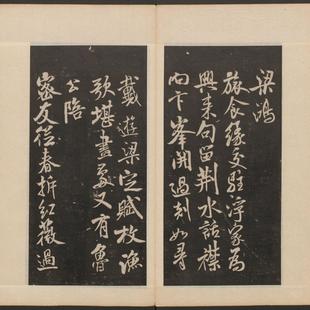 梁鴻
旅食緣交駐浮家為
興來句留荊水話襟
向卞峯開過剡如尋
戴遊梁定賦枚漁
歌堪畫處又有魯
公陪
密友從春拆紅薇過